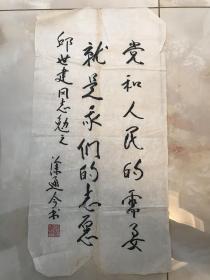 党和人民的需要
就是我们的志愿
邱世建同志勉之
涂通今书